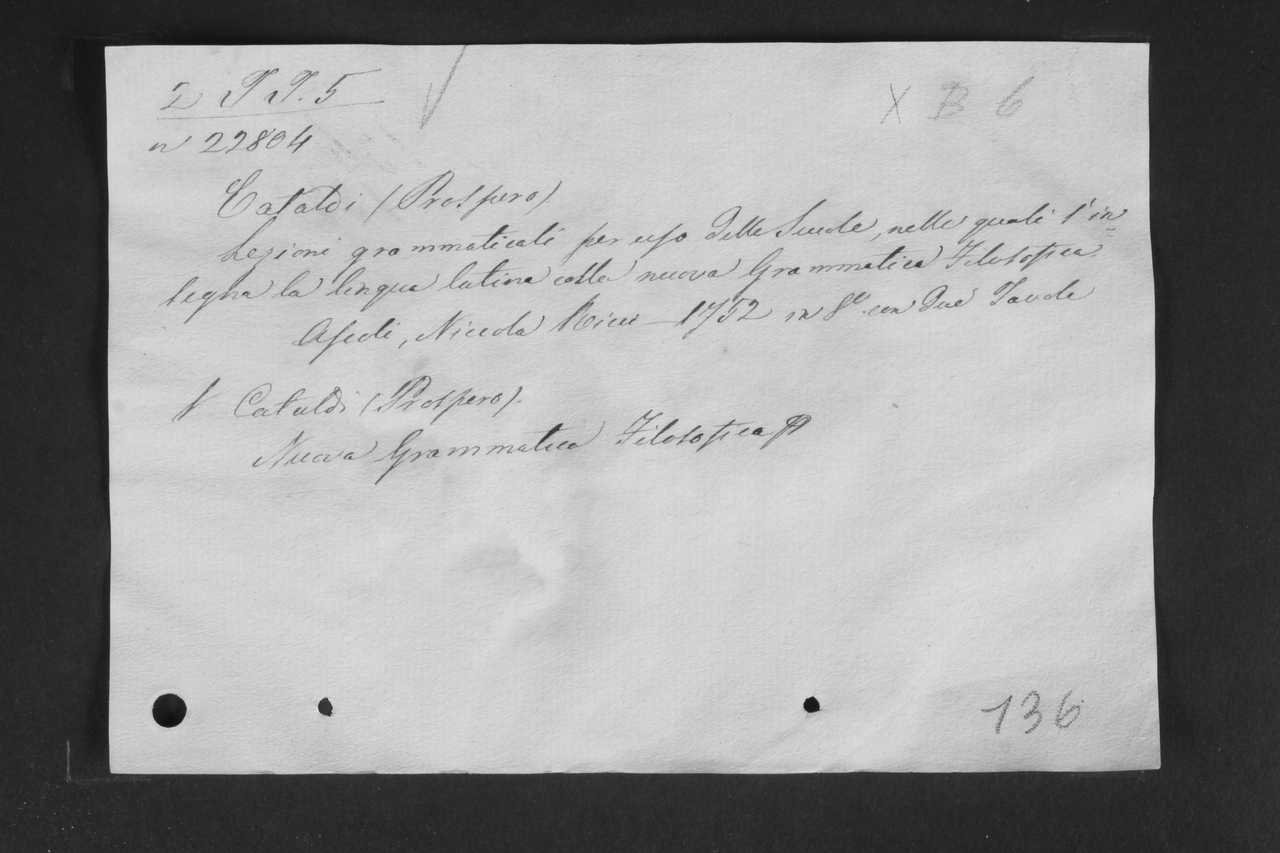 2 T T. 5
X B 6
n 22804
Cataldi (Prospero)
Lezioni grammaticali per uso delle Scuole, nelle quali s'in=
segna la lingua latina colla nuova Grammatica Filosofica.
Ascoli, Niccola Ricci 1752 in 8º con due Tavole
V Cataldi (Prospero).
Nuova Grammatica Filosofica
136